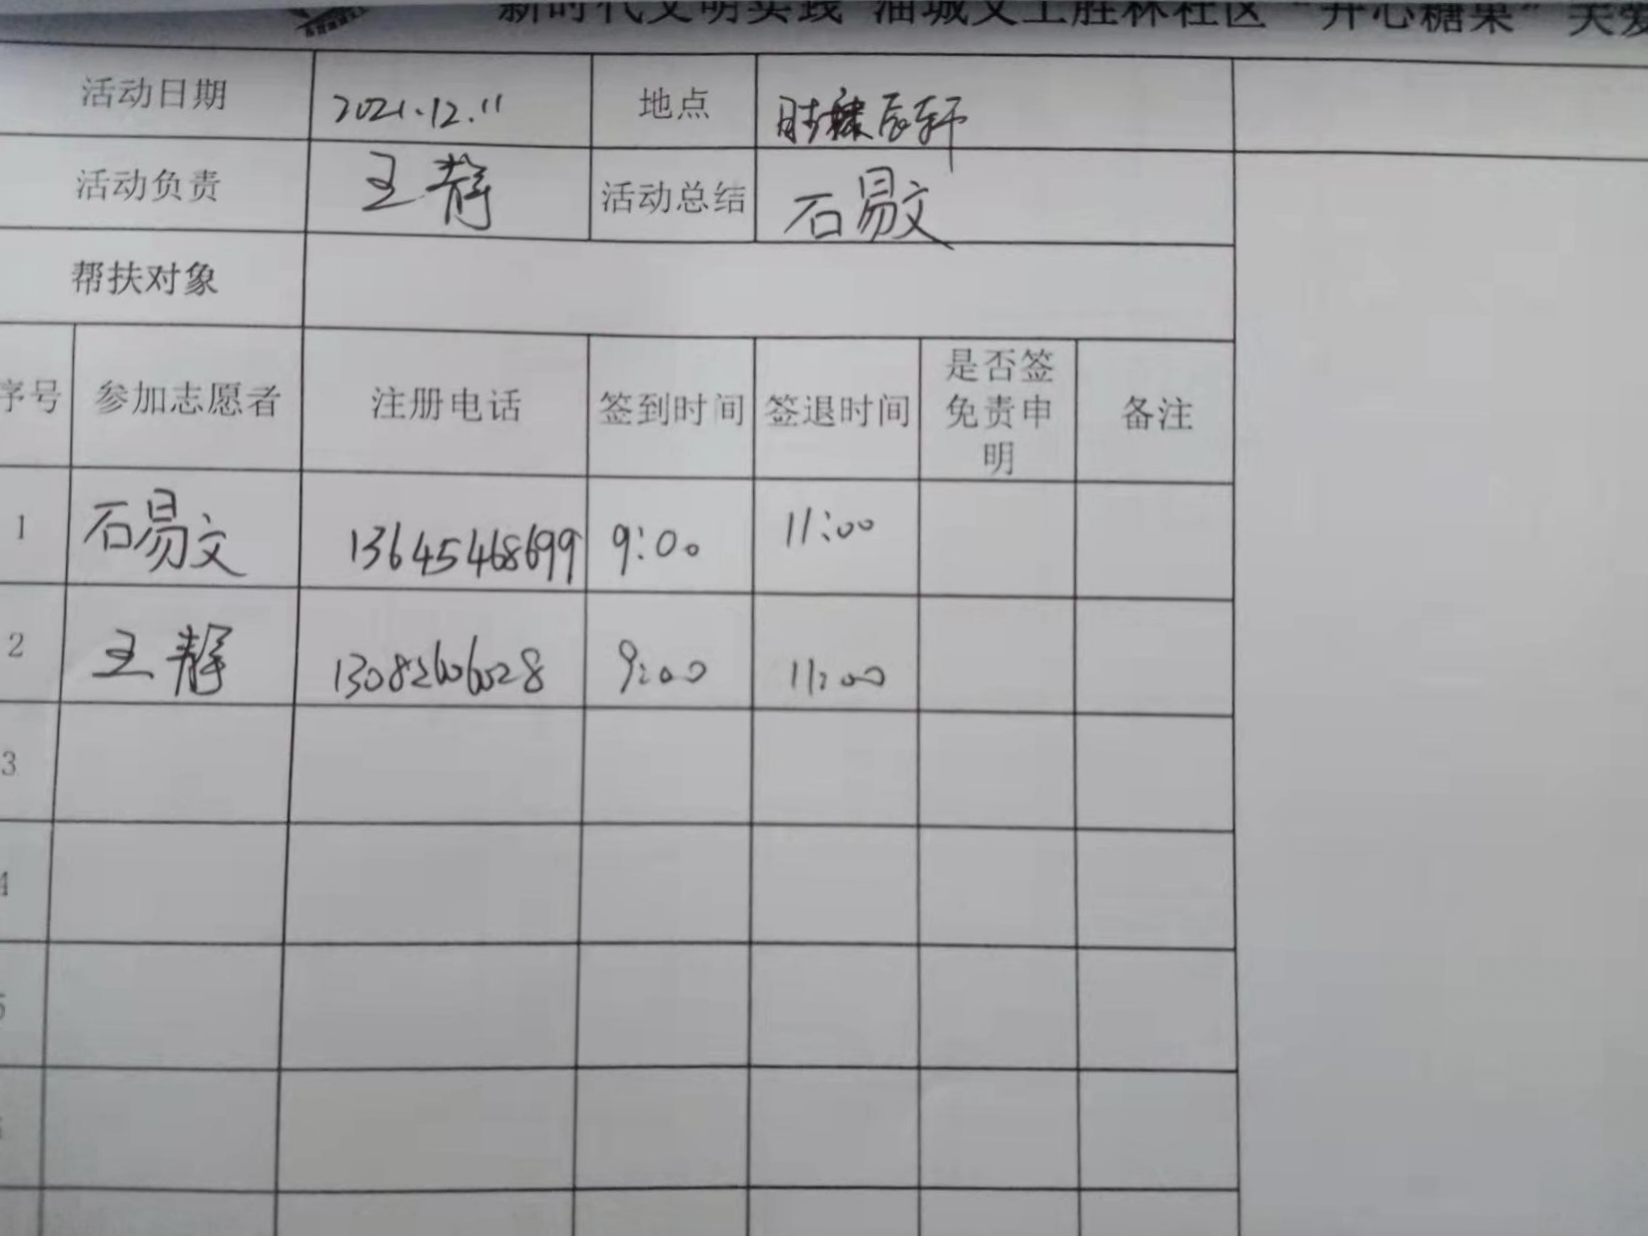 新时代文明实践 油城义工胜林社区“开心糖果”关爱
活动日期 2021.12.11 地点 辰轩
活动负责 王静 活动总结 石易文
帮扶对象
序号 参加志愿者 注册电话 签到时间 签退时间 是否签
免责申
明 备注
1 石易文 13645468699 9:00 11:00
2 王静 13082606028 9:00 11:00
3
4
5